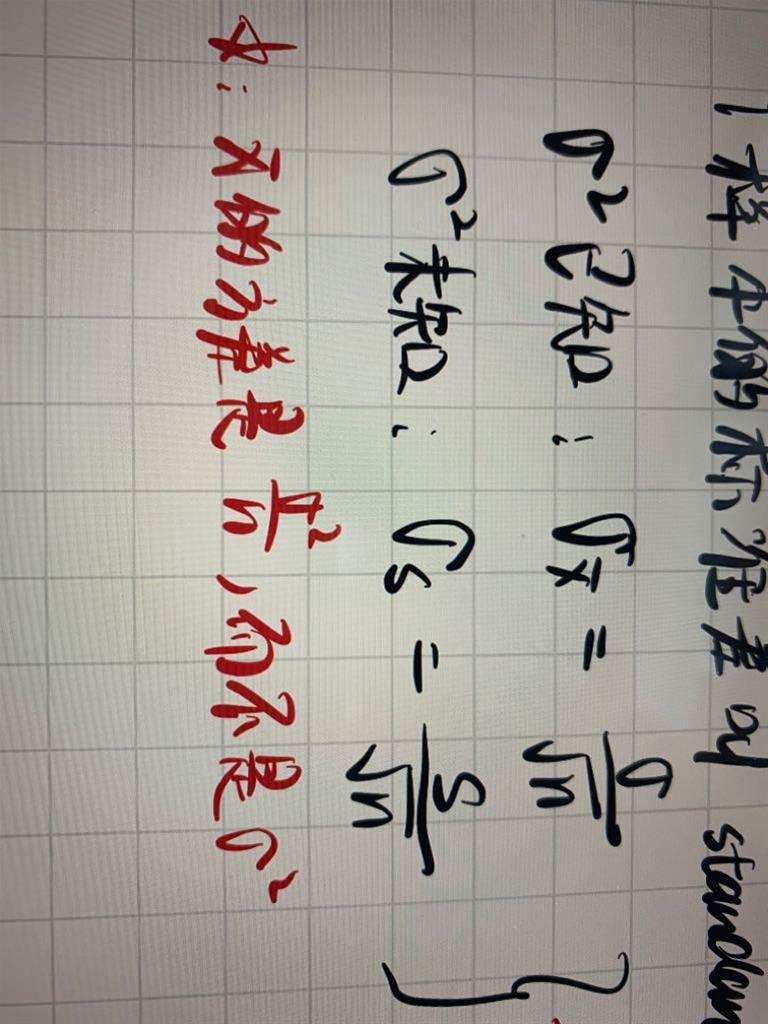 样本的标准差叫 standar
σ²已知: σx̄ = σ/√n
σ²未知: σs = s/√n }
*: x̄的方差是 σ²/n, 而不是σ²